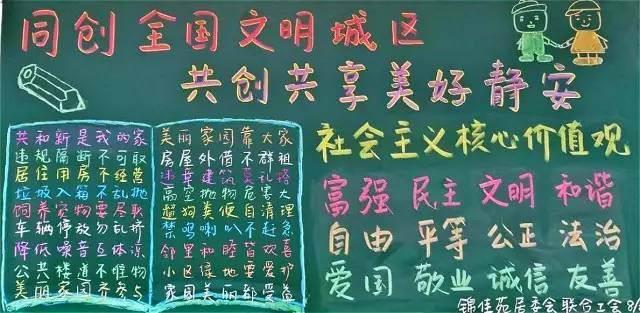 同创全国文明城区
共创共享美好静安
共和新是我的家
违规隔断不可取
居住用房不经营
垃圾入箱不乱抛
饲养宠物
车辆停放勿乱
降低噪音互体谅
公共楼道不物
美丽家园齐参与
美丽家园靠大家
房屋外借不群租
违章建筑搭
高空抛物危害大
便自清理
禁鸣喇叭不赶急
邻里和睦皆欢喜
小区绿地要爱护
家园美丽都受益
社会主义核心价值观
富强 民主 文明 和谐
自由 平等 公正 法治
爱国 敬业 诚信 友善
锦佳苑居委会联合工会